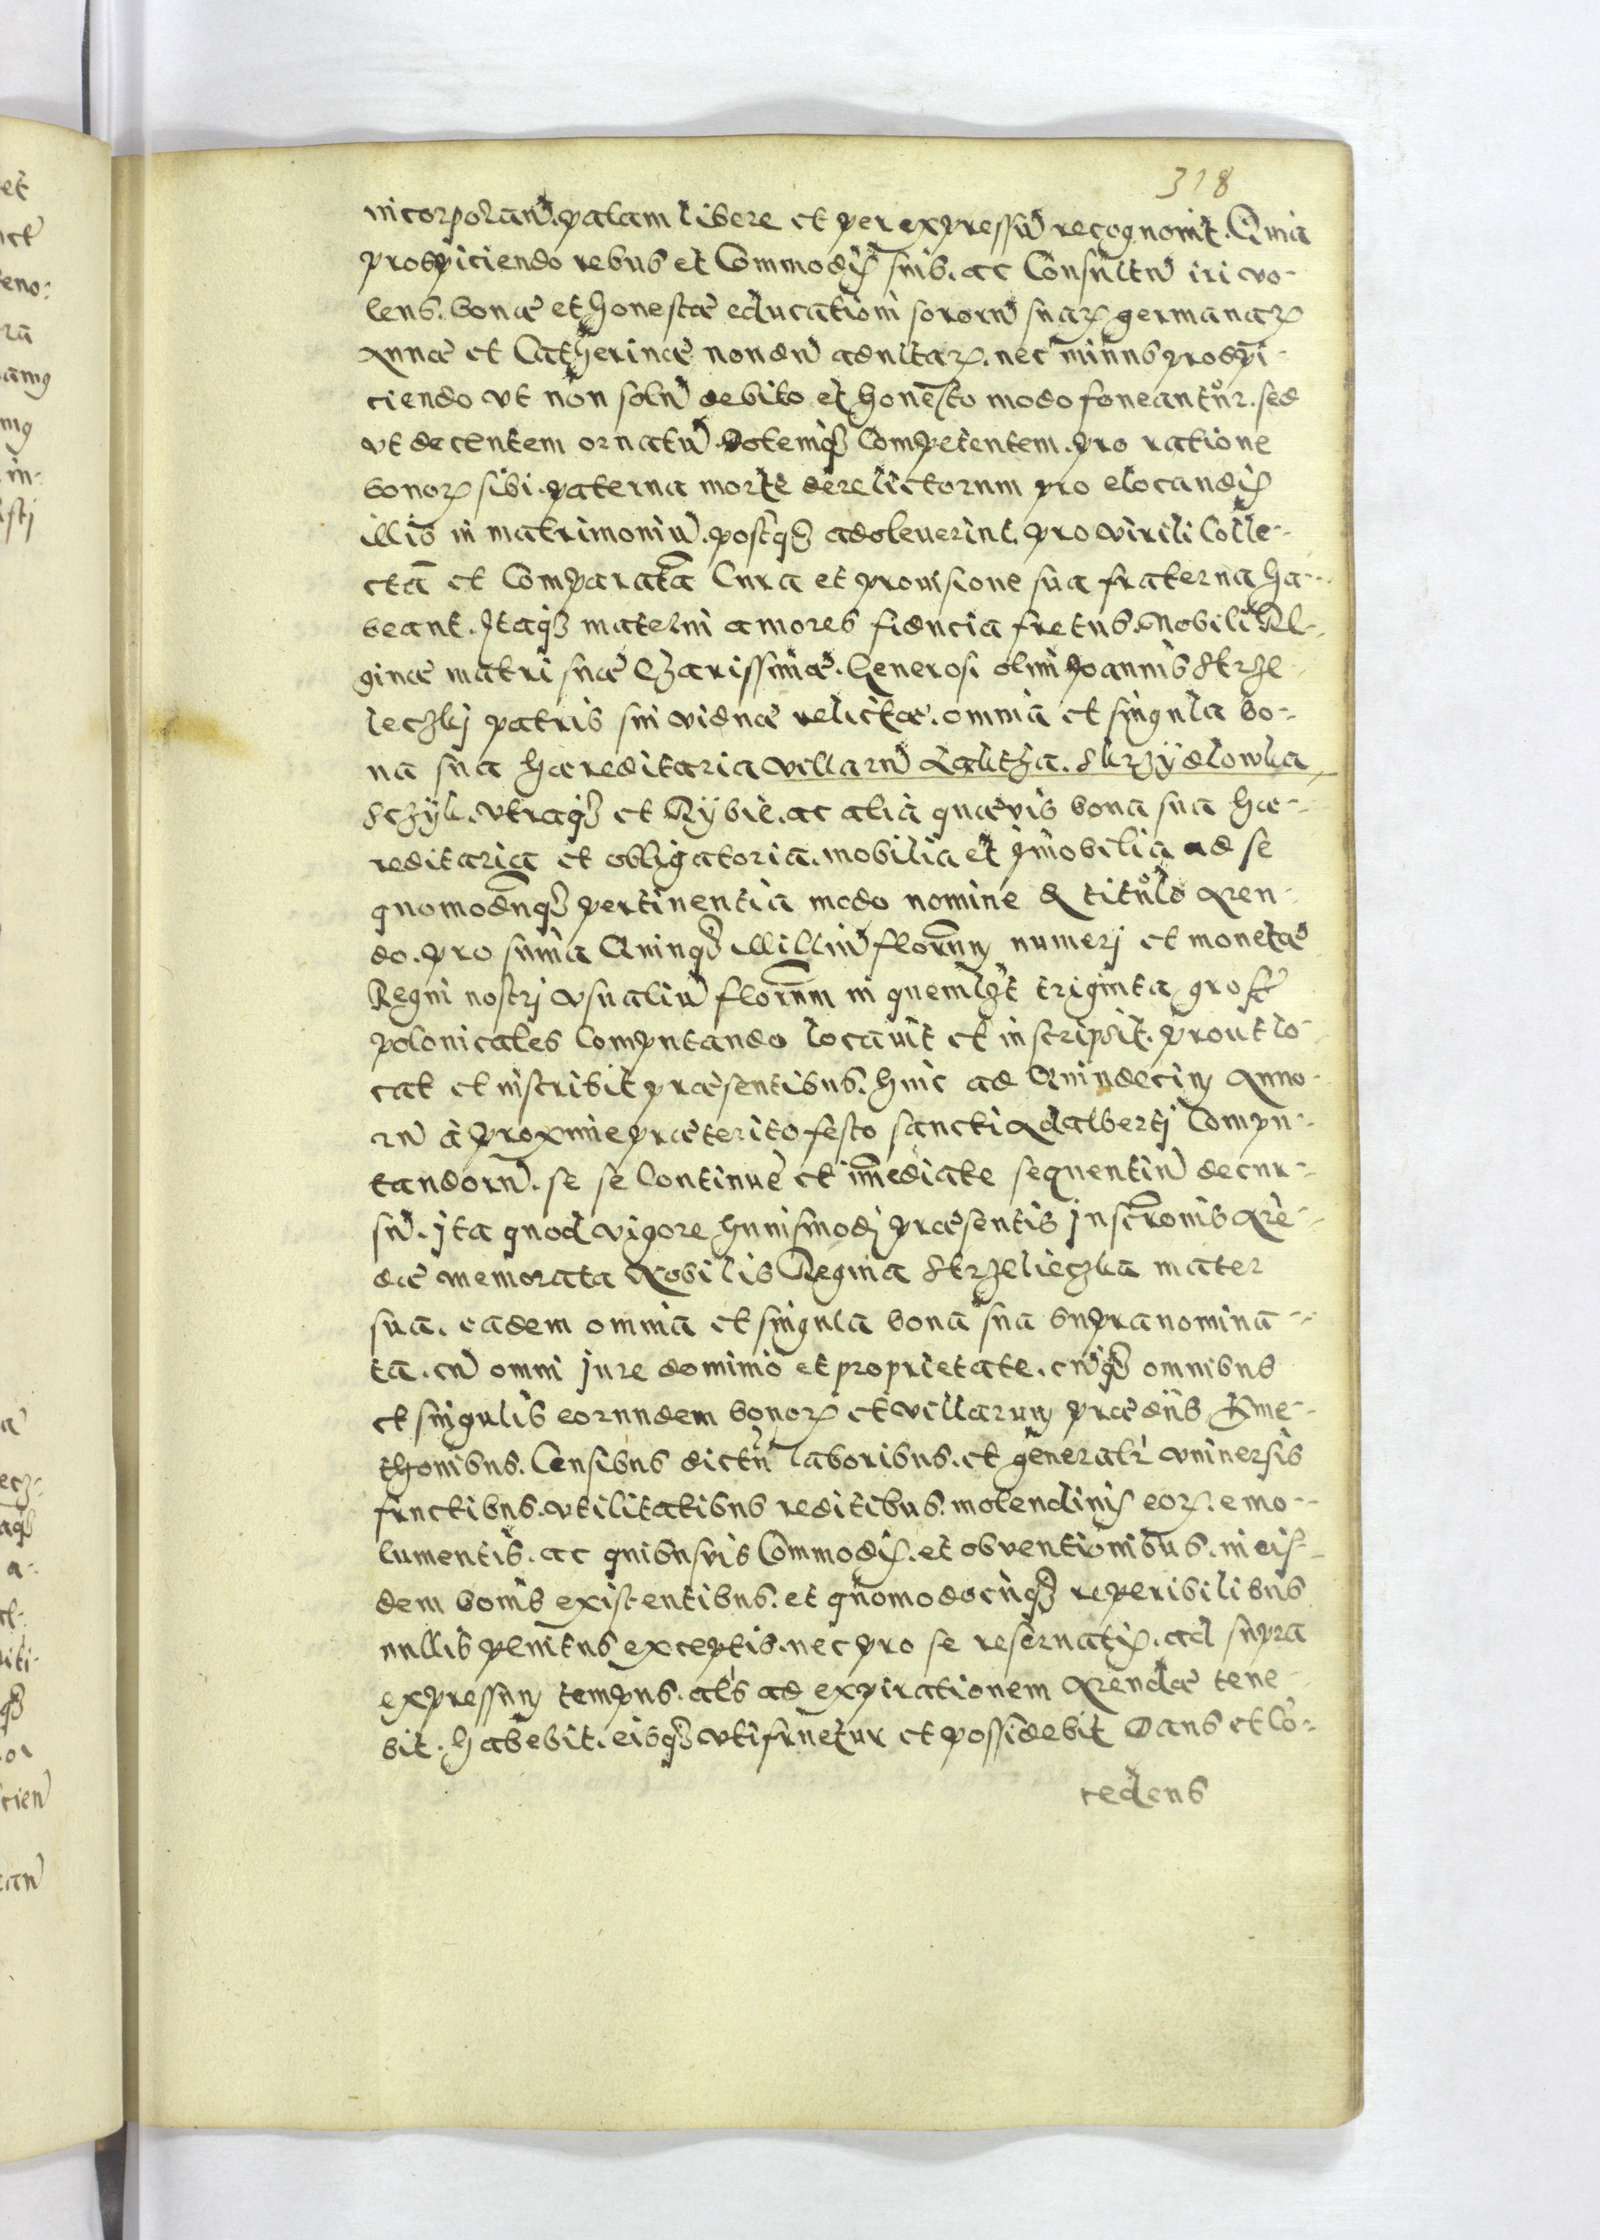 318
incorporand. palam libere et per expressum recognovit. Quia
prospiciendo rebus et Commodis suis. ac Consultum iri vo-
lens. bonæ et honestæ educationi sororum suarum germanarum
Annæ et Catherinæ nondum adultarum. nec minus prospi-
ciendo ut non solum debito et honesto modo foveantur. sed
ut decentem ornatum. Dotemque Competentem. pro ratione
bonorum sibi. paterna morte derelictorum pro elocandis
illis in matrimonium. postquam adoleverint. pro virili Colle-
cta et Comparata Cura et provisione sua fraterna ha-
beant. Itaque materni amores fiducia fretus. Nobili Re-
ginæ matri suæ Charissimæ. Generosi olim Joannis Strze-
leczkj patris sui viduæ relictæ. omnia et singula bo-
na sua hæreditaria villarum Lakitha. Skrzydlowka
Sczyk. utraque et Rybie. ac alia quævis bona sua hæ-
reditaria et obligatoria. mobilia et immobilia ad se
quomodcunque pertinentia modo nomine et titulo Aren-
do. pro summa Quinque Millium florenorum numeri et monetæ
Regni nostrj usualium florenorum in quemlibet triginta gross
polonicales Computando locavit et inscripsit. prout lo-
cat et inscribit præsentibus. hinc ad Quindecim Anno-
rum a proxime præterito festo sancti Adalbertj Compu-
tandorum. se se Continue et immediate sequentium decur-
sum. jta quod vigore hujusmodj præsentis Inscriptionis Are-
dæ memorata Nobilis Regina Strzelieczka mater
sua. eadem omnia et singula bona sua supranomina-
ta. cum omni jure dominio et proprietate. cumque omnibus
et singulis eorundem bonorum et villarum prædiis Kme-
thonibus. Censibus dictum laboribus. et generali universis
fructibus. utilitatibus reditibus. molendinis eorum. emo-
lumentis. ac quibusvis Commodis. et obventionibus. in eis-
dem bonis existentibus. et quomodocunque reperibilibus
nullis penitus exceptis. nec pro se reservatis. ad supra
expressum tempus. als ad expirationem Arendæ tene-
bit. habebit. eisque utifruetur et possidebit Dans et Co-
cedens